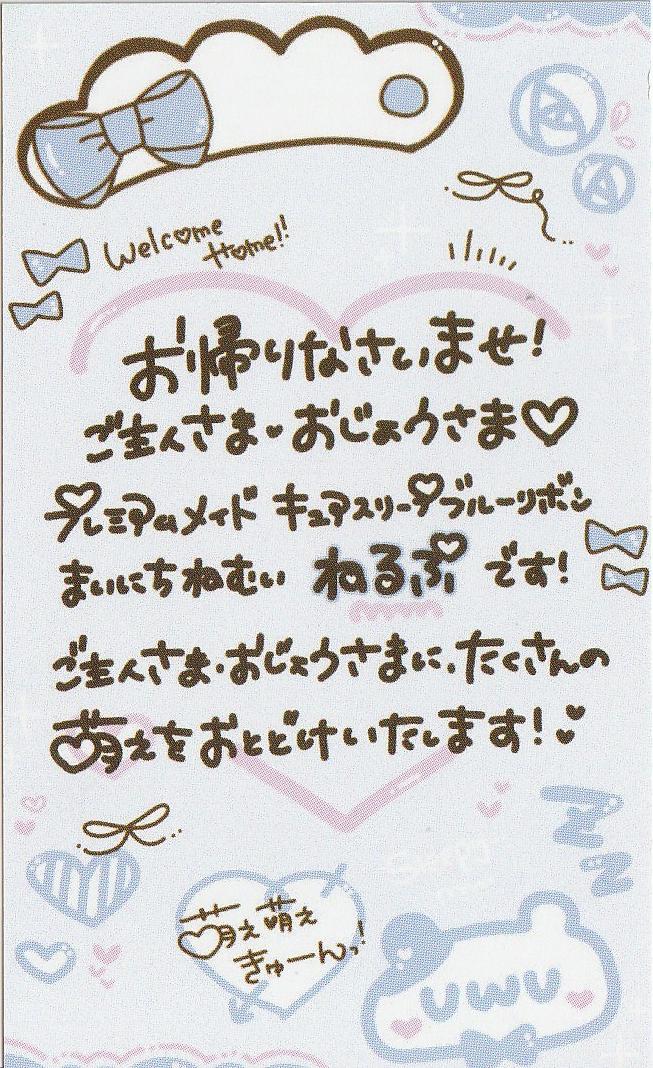 Welcome
Home!!
お帰りなさいませ!
ご主人さま・おじょうさま♡
プレミアムメイド キュアスリープブルーリボン
まいにちねむい ねるぷ です!
ご主人さま・おじょうさまに、たくさんの
萌えをおとどけいたします!
萌え萌え
きゅーんっ!
Z
Z
UWU